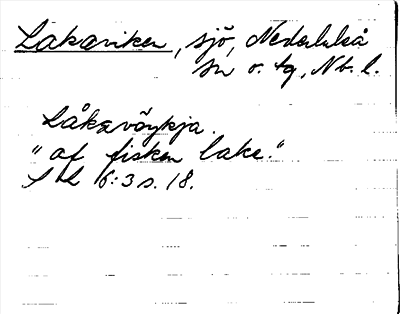 Lakaviken, sjö, Nederluleå
sn o. tg, Nb. l.
Låkavöykja.
"af fisken lake."
SL 6:3 s. 18.